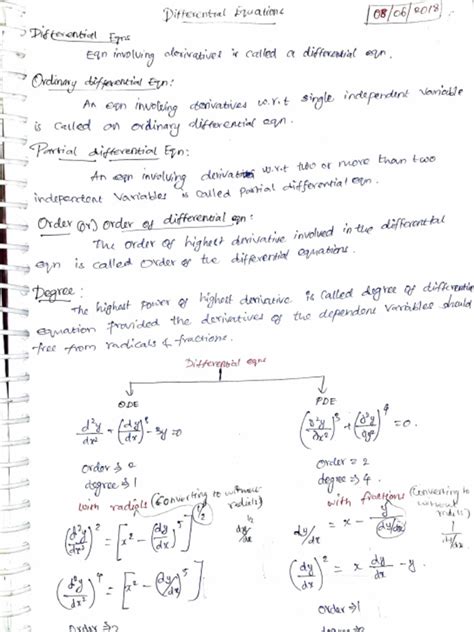 Differential Equations
08/06/2018
Differential Eqns
Eqn involving derivatives is called a differential eqn.
Ordinary differential Eqn:
An eqn involving derivatives w.r.t single independent variable
is called an ordinary differential eqn.
Partial differential Eqn:
An eqn involving derivatives w.r.t two or more than two
independent variables is called partial differential eqn.
Order (or) order of differential eqn:
The order of highest derivative involved in the differential
eqn is called order of the differential equations.
Degree:
The highest power of highest derivative is called degree of differential
equation provided the derivatives of the dependent variables should
free from radicals & fractions.
Differential eqns
ODE PDE
d²y/dx² + (dy/dx) - 3y=0
order ⇒ 2
order = 2
degree ⇒ 1
degree ⇒ 4.
with radicals (converting to without
radicals)
with fractions (converting to
without
radicals)
(d²y/dx²)² = [x² - (dy/dx)⁵]^1/2
dy/dx = x - y/(dy/dx)
(dy/dx)² = x dy/dx - y
order ⇒ 2
order ⇒ 1